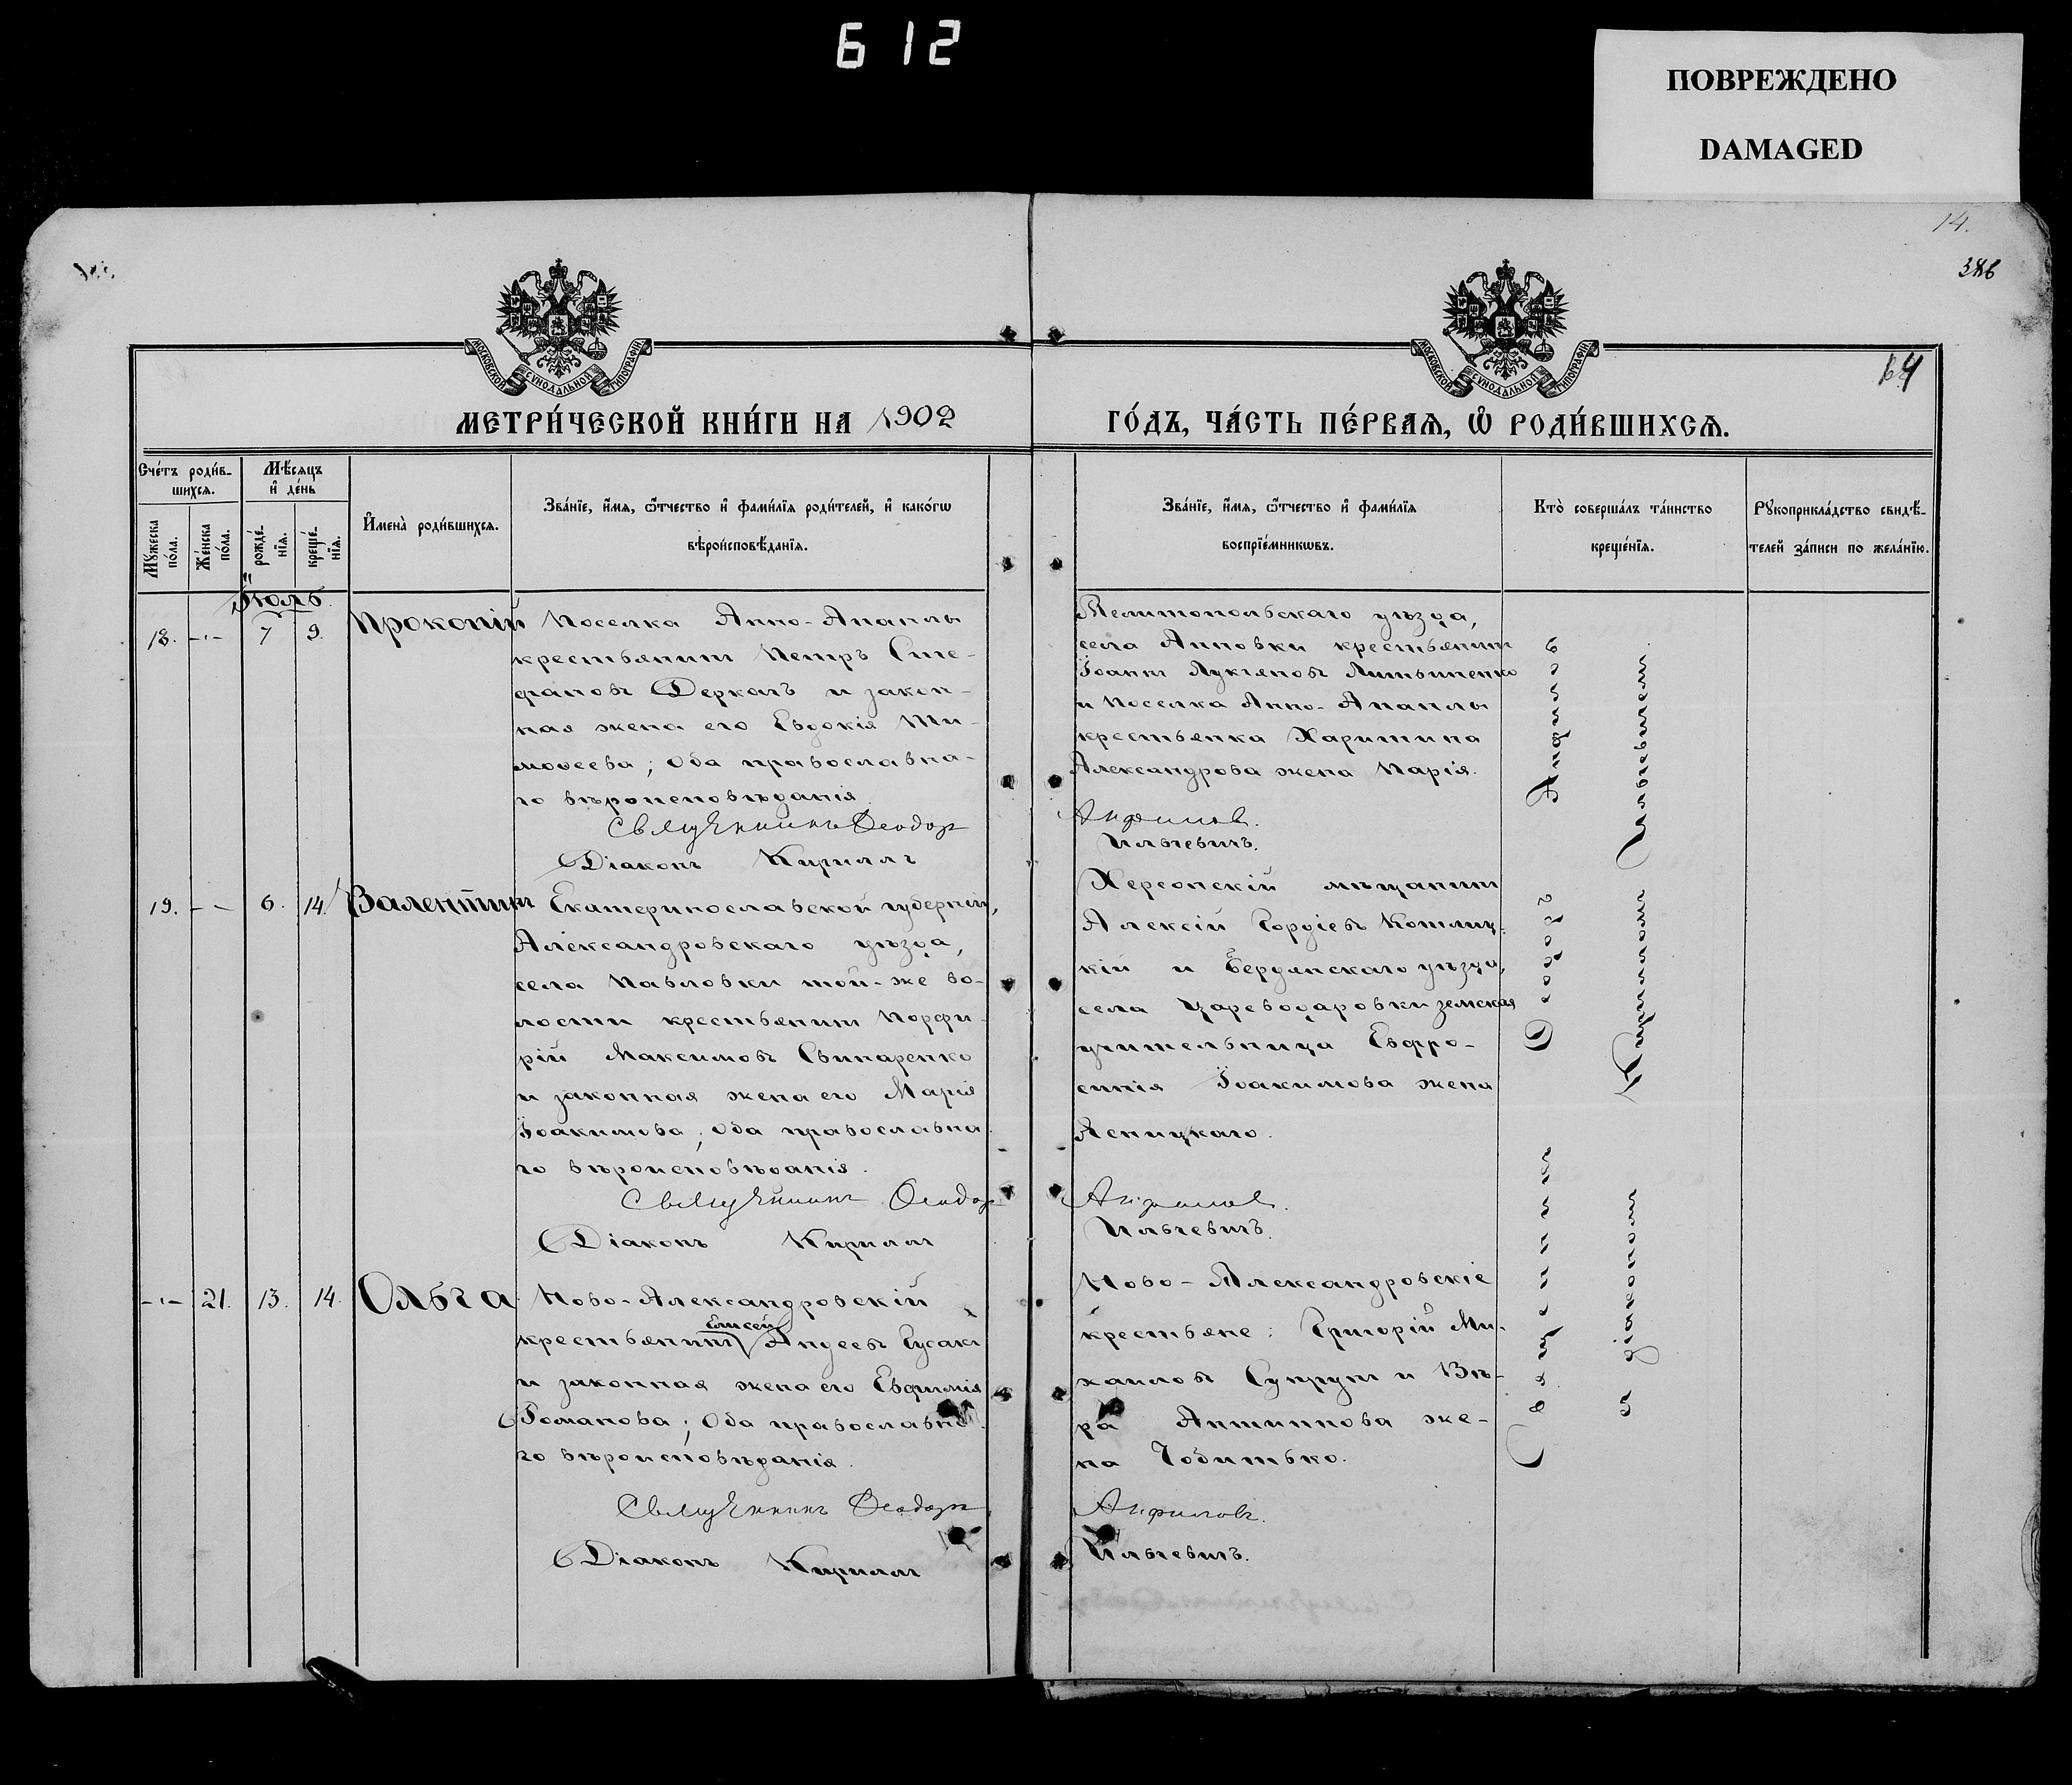 612
ПОВРЕЖДЕНО
DAMAGED
14.
386
64
МОСКОВСКОЙ СѴНОДАЛЬНОЙ ТИПОГРАФІИ
МОСКОВСКОЙ СѴНОДАЛЬНОЙ ТИПОГРАФІИ
МЕТРИ́ЧЕСКОЙ КНИ́ГИ НА 1902 ГО́ДЪ, ЧА́СТЬ ПЕ́РВАѦ, Ѡ҆ РОДИ́ВШИХСѦ.
Сче́тъ роди́в-
шихсѧ.
Мѣ́сѧцъ
и҆ де́нь
Мꙋ́жеска
по́ла.
Же́нска
по́ла.
рожде́-
нїѧ.
креще́-
нїѧ.
И҆мена̀ роди́вшихсѧ.
Зва́нїе, и҆́мѧ, ѻ҆́тчество и҆ фами́лїѧ роди́телей, и҆ како́гѡ
вѣроисповѣ́данїѧ.
Зва́нїе, и҆́мѧ, ѻ҆́тчество и҆ фами́лїѧ
воспрїе́мникѡвъ.
Кто̀ соверша́лъ та́инство
креще́нїѧ.
Рꙋкоприкла́дство свидѣ́-
телей за́писи по жела́нїю.
Іюль
18. -"- 7 9. Прокопій
Поселка Анно-Анапль
крестьянинъ Петръ Сте-
фановъ Деркачъ и закон-
ная жена его Евдокія Ти-
мофеева; Оба православна-
го вѣроисповѣданія.
Священникъ Ѳеодоръ
Діаконъ Кириллъ
Мелитопольскаго уѣзда,
села Анновки крестьянинъ
Іоаннъ Лукіяновъ Литвиненко
и поселка Анно-Анапль
крестьянка Харитина
Александрова жена Марія.
Анфиловъ.
Ильчевичъ.
19. - - 6. 14. Валентинъ
Екатеринославской губерніи,
Александровскаго уѣзда,
села Павловки той-же во-
лости крестьянинъ Порфи-
рій Максимовъ Свинаренко
и законная жена его Марія
Іоакимова; Оба православна-
го вѣроисповѣданія.
Священникъ Ѳеодоръ
Діаконъ Кириллъ
Херсонскій мѣщанинъ
Алексій Гордіевъ Котлиц-
кій и Бердянскаго уѣзда,
села Цареводаровки земская
учительница Евфро-
синія Іоакимова жена
Ясницкаго.
Анфиловъ.
Ильчевичъ.
-"- 21. 13. 14. Ольга
Ново-Александровскій
крестьянинъ Елисей Андеевъ Гусакъ
и законная жена его Евфимія
Романова; Оба православна-
го вѣроисповѣданія.
Священникъ Ѳеодоръ
Діаконъ Кириллъ
Ново-Александровскіе
крестьяне: Григорій Ми-
хаиловъ Супрунъ и Вѣ-
ра Антипова же-
на Чобитько.
Анфиловъ.
Ильчевичъ.
Священникъ Ѳеодоръ Анфиловъ
съ діакономъ Кирилломъ Ильчевичемъ